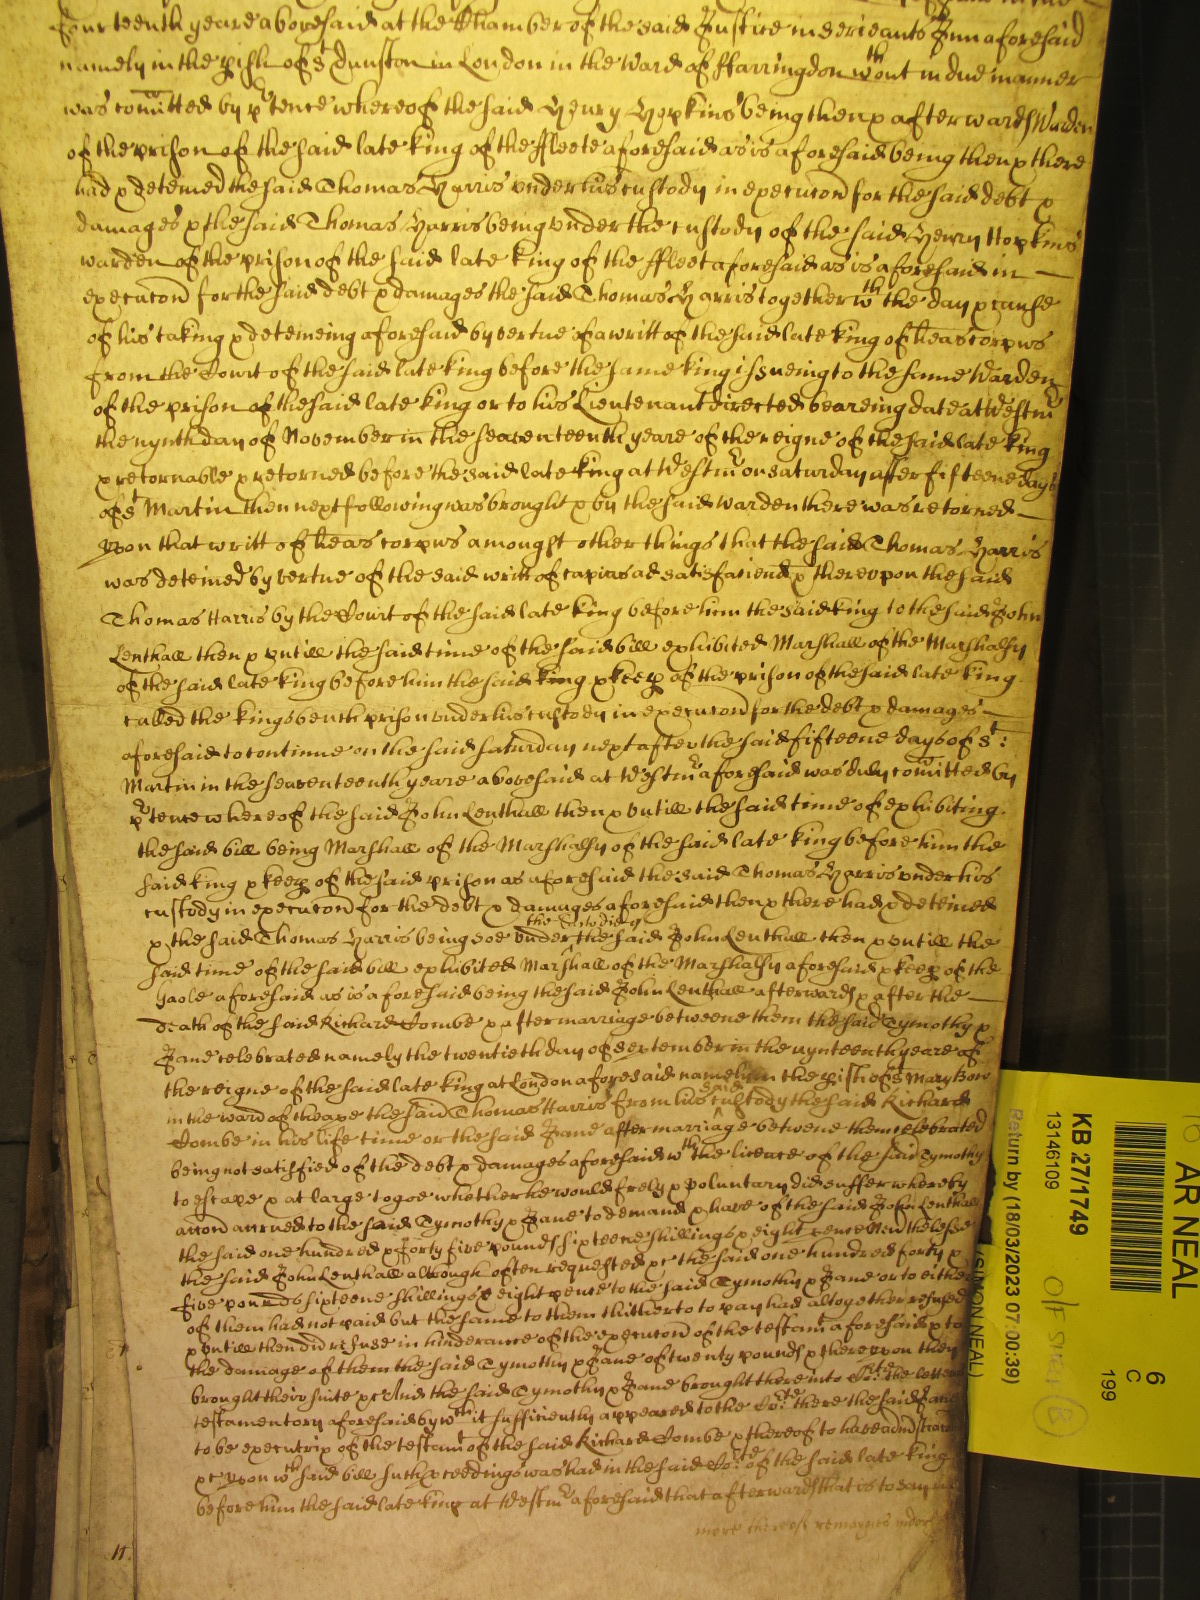 fourteenth yeare abovesaid at the Chamber of the said Justice in Serieants Inn aforesaid
namely in the p'ish of St Dunston in London in the Ward of ffarringdon wthout in due manner
was comitted by p'tence whereof the said Henry Hopkins being then & afterwards Warden
of the prison of the said late king of the ffleete aforesaid as is aforesaid being then & there
had & deteined the said Thomas Harris under his custody in execucon for the said debt &
damages & the said Thomas Harris being under the custody of the said Henry Hopkins
warden of the prison of the said late king of the ffleet aforesaid as is aforesaid in
execucon for the said debt & damages the said Thomas Harris together wth the day & cause
of his taking & deteineing aforesaid by vertue of a writt of the said late king of heas corpus
from the Court of the said late king before the same king issueing to the same Warden
of the prison of the said late king or to his Lieutenant directed beareing date at Westmr
the nynth day of November in the seaventeenth yeare of the reigne of the said late king
& retornable & retorned before the said late king at Westmr on saturday after fifteene days
of St Martin then next following was brought & by the said warden there was retorned
upon that writt of heas corpus amongst other things that the said Thomas Harris
was deteined by vertue of the said writt of capias ad satisfaciend & thereupon the said
Thomas Harris by the Court of the said late king before him the said king to the said John
Lenthall then & untill the said time of the said bill exhibited Marshall of the Marshalsy
of the said late king before him the said king & keep of the prison of the said late king
called the kings bench prison under his custody in execucon for the debt & damages
aforesaid to continue on the said saturday next after the said fifteene days of St:
Martin in the seaventeenth yeare abovesaid at Westmr aforesaid was duly comitted by
p'tence whereof the said John Lenthall then & untill the said time of exhibiting
the said bill being Marshall of the Marshalsy of the said late king before him the
said king & keep of the said prison as aforesaid the said Thomas Harris under his
custody in execucon for the debt & damages aforesaid then & there had & deteined
& the said Thomas Harris being soe under the custodie of the said John Lenthall then & untill the
said time of the said bill exhibited Marshall of the Marshalsy aforesaid & keep of the
Gaole aforesaid as is aforesaid being the said John Lenthall afterwards & after the
death of the said Richard Combe & after marriage betweene them the said Tymothy &
Jane celebrated namely the twentieth day of September in the nynteenth yeare of
the reigne of the said late king at London aforesaid namely in the p'ish of St Mary Bow
in the ward of Cheape the said Thomas Harris from his said custody the said Richard
Combe in his life time or the said Jane after marriage betweene them celebrated
being not satisfied of the debt & damages aforesaid wth the licence of the said Tymothy
to escape & at large to goe whether he would frely & voluntary did suffer whereby
accon accrued to the said Tymothy & Jane to demand & have of the said John Lenthall
the said one hundred & forty five pounds sixteene shillings & eight pence Neverthelesse
the said John Lenthall although often requested &c the said one hundred forty &
five pounds sixteene shillings & eight pence to the said Tymothy & Jane or to either
of them had not paid but the same to them thitherto to pay had altogether refused
& untill then did refuse in hinderance of the execucon of the testamt aforesaid & to
the damage of them the said Tymothy & Jane of twenty pounds & thereupon then
brought their suite &c And the said Tymothy & Jane brought there into Co:rte the letters
testamentory aforesaid by wch it sufficiently appeared to the Co:rte there the said Jane
to be executrix of the testamt of the said Richard Combe & thereof to have
&c upon wch said bill such p'ceedings was had in the said Co:rte of the said late king
before him the said late king at Westmr aforesaid that afterwards that is to say
more thereof remaynes
11.
KB 27/1749
13146109
Return by (18/03/2023 07:00:39)
(SIMON NEAL)
AR NEAL
6
C
199